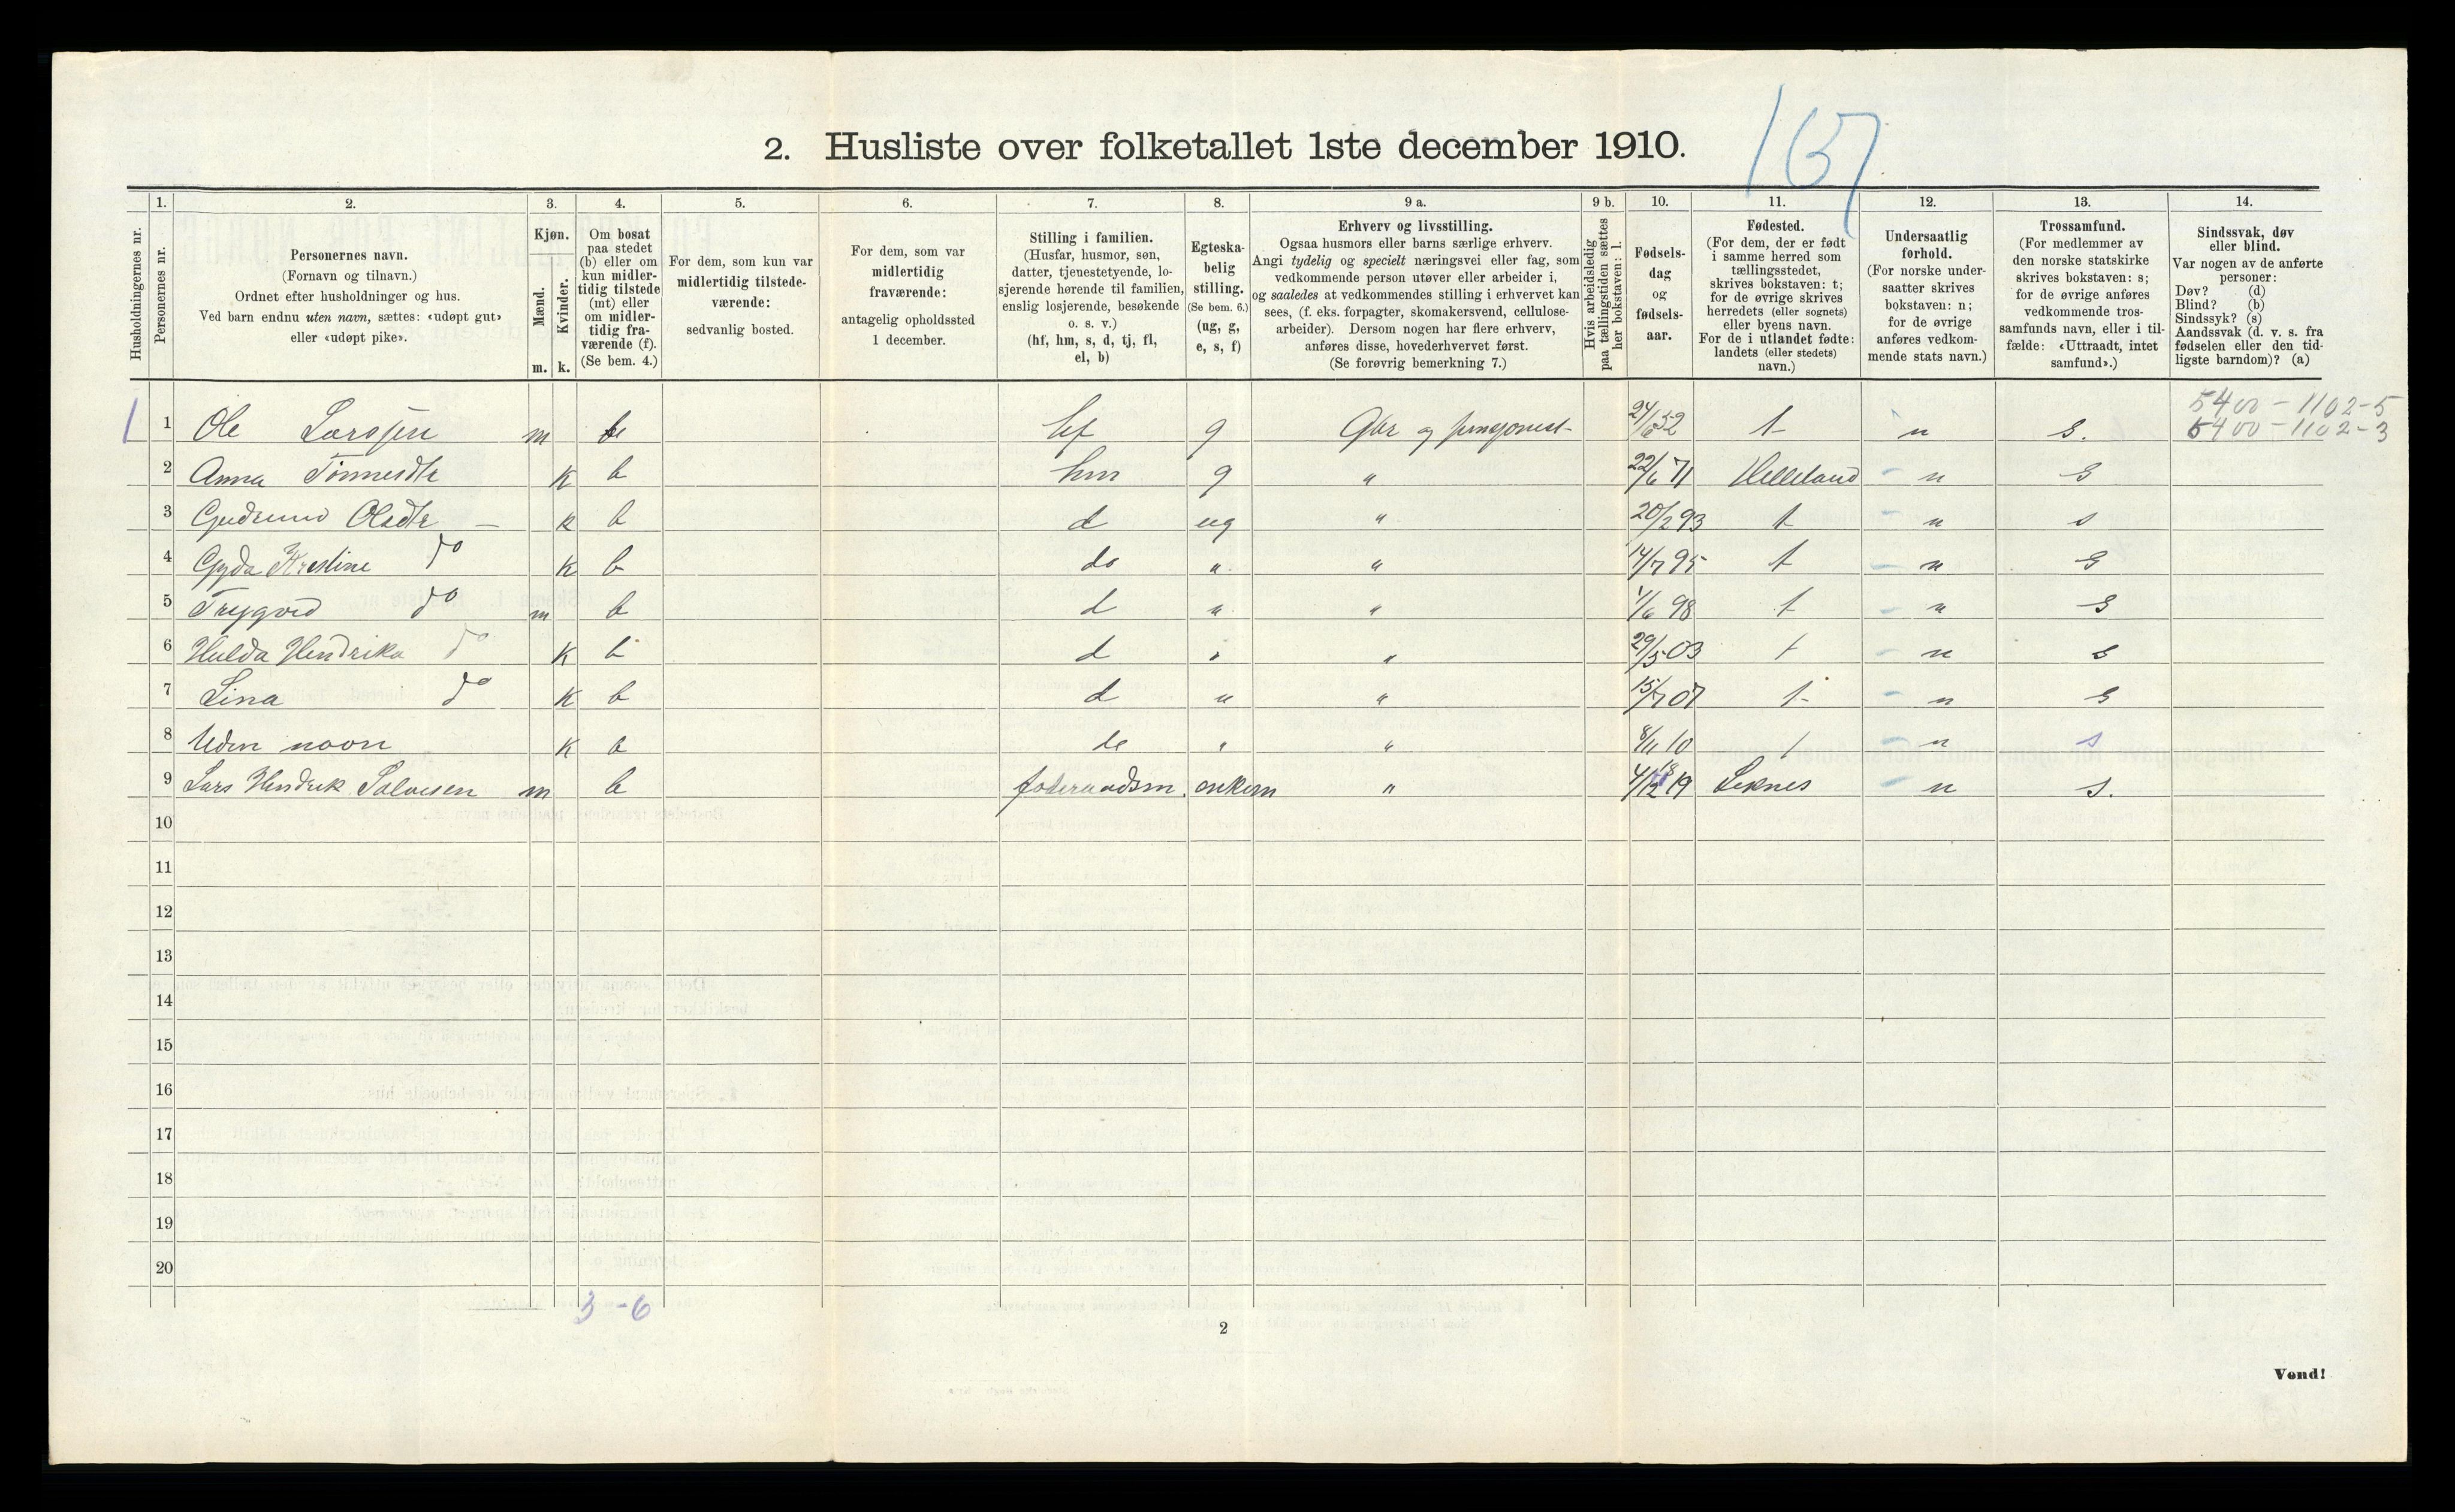 167
2. Husliste over folketallet 1ste december 1910.
Husholdningernes nr.
1. Personernes nr.
2. Personernes navn.
(Fornavn og tilnavn.)
Ordnet efter husholdninger og hus.
Ved barn endnu uten navn, sættes: «udøpt gut»
eller «udøpt pike».
3. Kjøn.
Mænd. Kvinder.
m. k.
4. Om bosat
paa stedet
(b) eller om
kun midler-
tidig tilstede
(mt) eller
om midler-
tidig fra-
værende (f).
(Se bem. 4.)
5. For dem, som kun var
midlertidig tilstede-
værende:
sedvanlig bosted.
6. For dem, som var
midlertidig
fraværende:
antagelig opholdssted
1 december.
7. Stilling i familien.
(Husfar, husmor, søn,
datter, tjenestetyende, lo-
sjerende hørende til familien,
enslig losjerende, besøkende
o. s. v.)
(hf, hm, s, d, tj, fl,
el, b)
8. Egteska-
belig
stilling.
(Se bem. 6.)
(ug, g,
e, s, f)
9 a. Erhverv og livsstilling.
Ogsaa husmors eller barns særlige erhverv.
Angi tydelig og specielt næringsvei eller fag, som
vedkommende person utøver eller arbeider i,
og saaledes at vedkommendes stilling i erhvervet kan
sees, (f. eks. forpagter, skomakersvend, cellulose-
arbeider). Dersom nogen har flere erhverv,
anføres disse, hovederhvervet først.
(Se forøvrig bemerkning 7.)
9 b. Hvis arbeidsledig
paa tællingstiden sættes
her bokstaven: l.
10. Fødsels-
dag
og
fødsels-
aar.
11. Fødested.
(For dem, der er født
i samme herred som
tællingsstedet,
skrives bokstaven: t;
for de øvrige skrives
herredets (eller sognets)
eller byens navn.
For de i utlandet fødte:
landets (eller stedets)
navn.)
12. Undersaatlig
forhold.
(For norske under-
saatter skrives
bokstaven: n;
for de øvrige
anføres vedkom-
mende stats navn.)
13. Trossamfund.
(For medlemmer av
den norske statskirke
skrives bokstaven: s;
for de øvrige anføres
vedkommende tros-
samfunds navn, eller i til-
fælde: «Uttraadt, intet
samfund».)
14. Sindssvak, døv
eller blind.
Var nogen av de anførte
personer:
Døv? (d)
Blind? (b)
Sindssyk? (s)
Aandssvak (d. v. s. fra
fødselen eller den tid-
ligste barndom)? (a)
5400 - 1102-5
1 1 Ole Larsen m b hf g Gbr og 24/6 52 t n s. 5400 - 1102-3
2 Anna Tønnesdtr k b hm g " 22/6 71 Helleland n s
3 Gudrund Olsdtr - k b d ug " 20/2 93 t n s
4 Gyda Kristine do k b do " " 14/7 95 t n s
5 Trygvid do m b d " " 1/6 98 t n s
6 Hulda Hendrika do k b d " " 29/5 03 t n s
7 Lina do k b d " " 15/7 07 t n s
8 Uden navn k b de " " 8/11 10 t n s
9 Lars Hendrik Salvesen m b foderaadsm. enkem " 4/12 18 19 Seknes n s.
10
11
12
13
14
15
16
17
18
19
20
3 - 6
2
Vend!